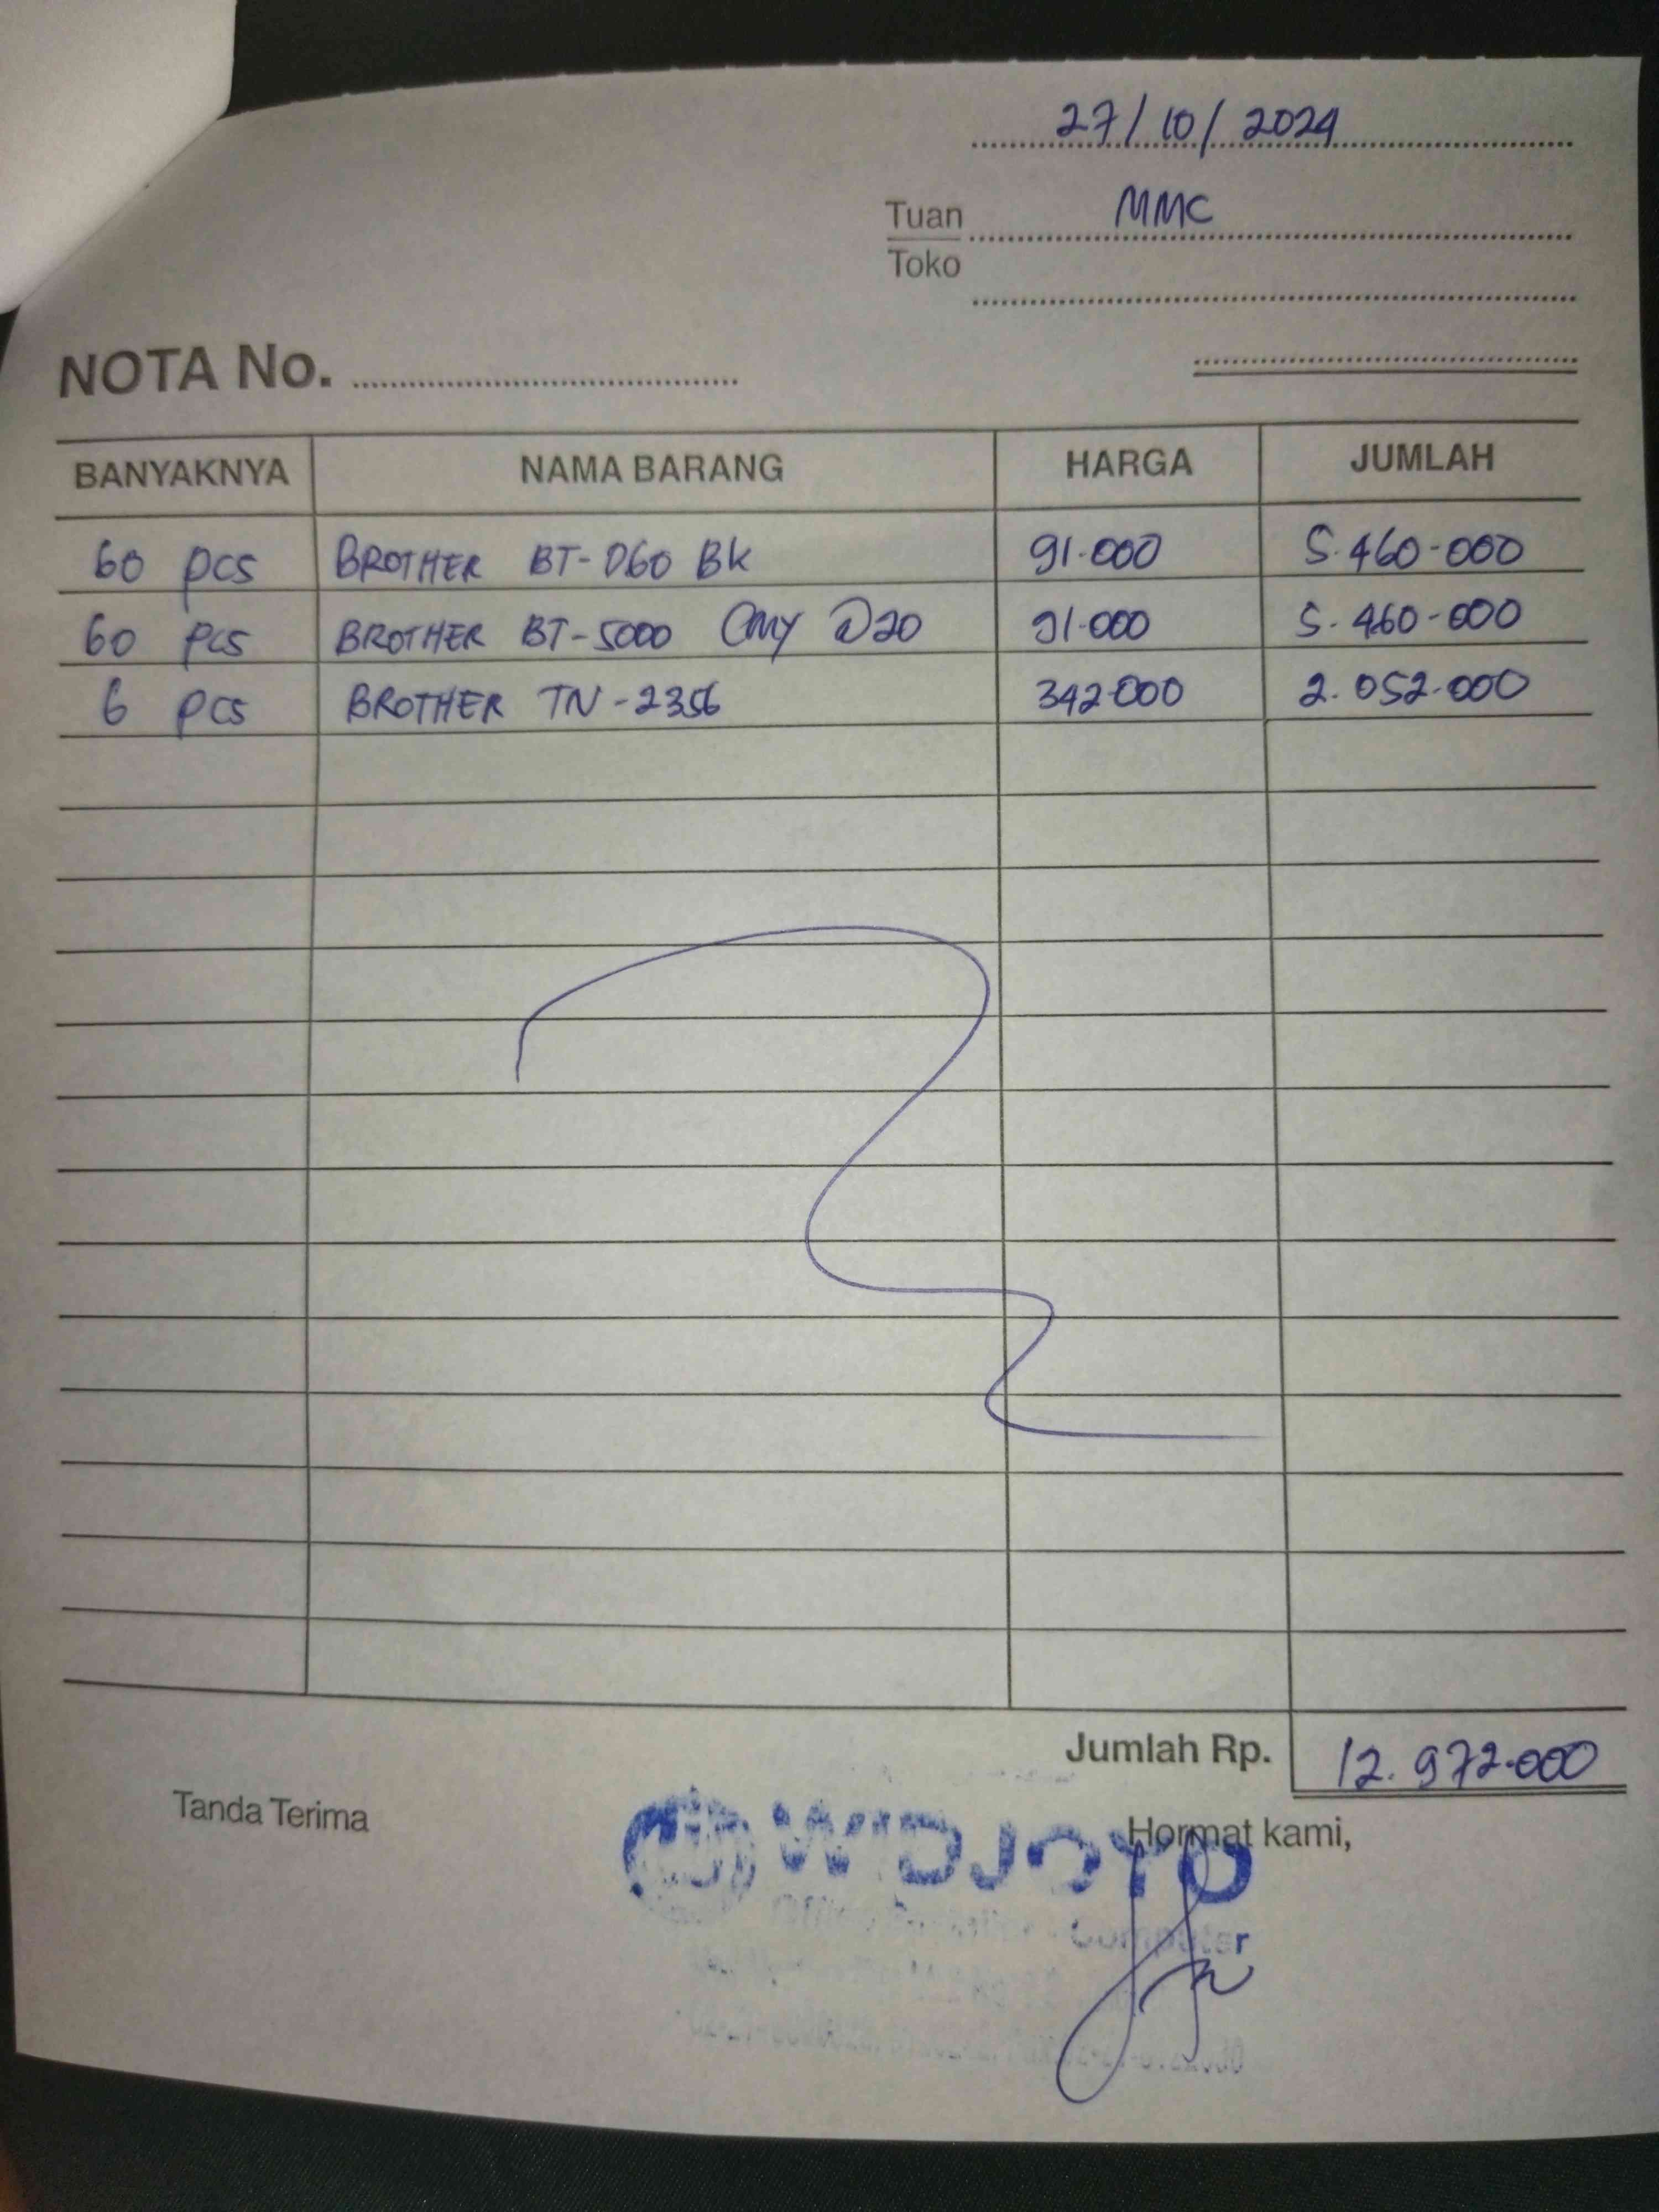 27/10/2024
Tuan MMC
Toko
NOTA No.
BANYAKNYA NAMA BARANG HARGA JUMLAH
60 pcs BROTHER BT-D60 BK 91.000 5.460.000
60 pcs BROTHER BT-5000 CMY @20 91.000 5.460.000
6 pcs BROTHER TN-2356 342.000 2.052.000
Jumlah Rp. 12.972.000
Tanda Terima
Hormat kami,
WIDJOYO